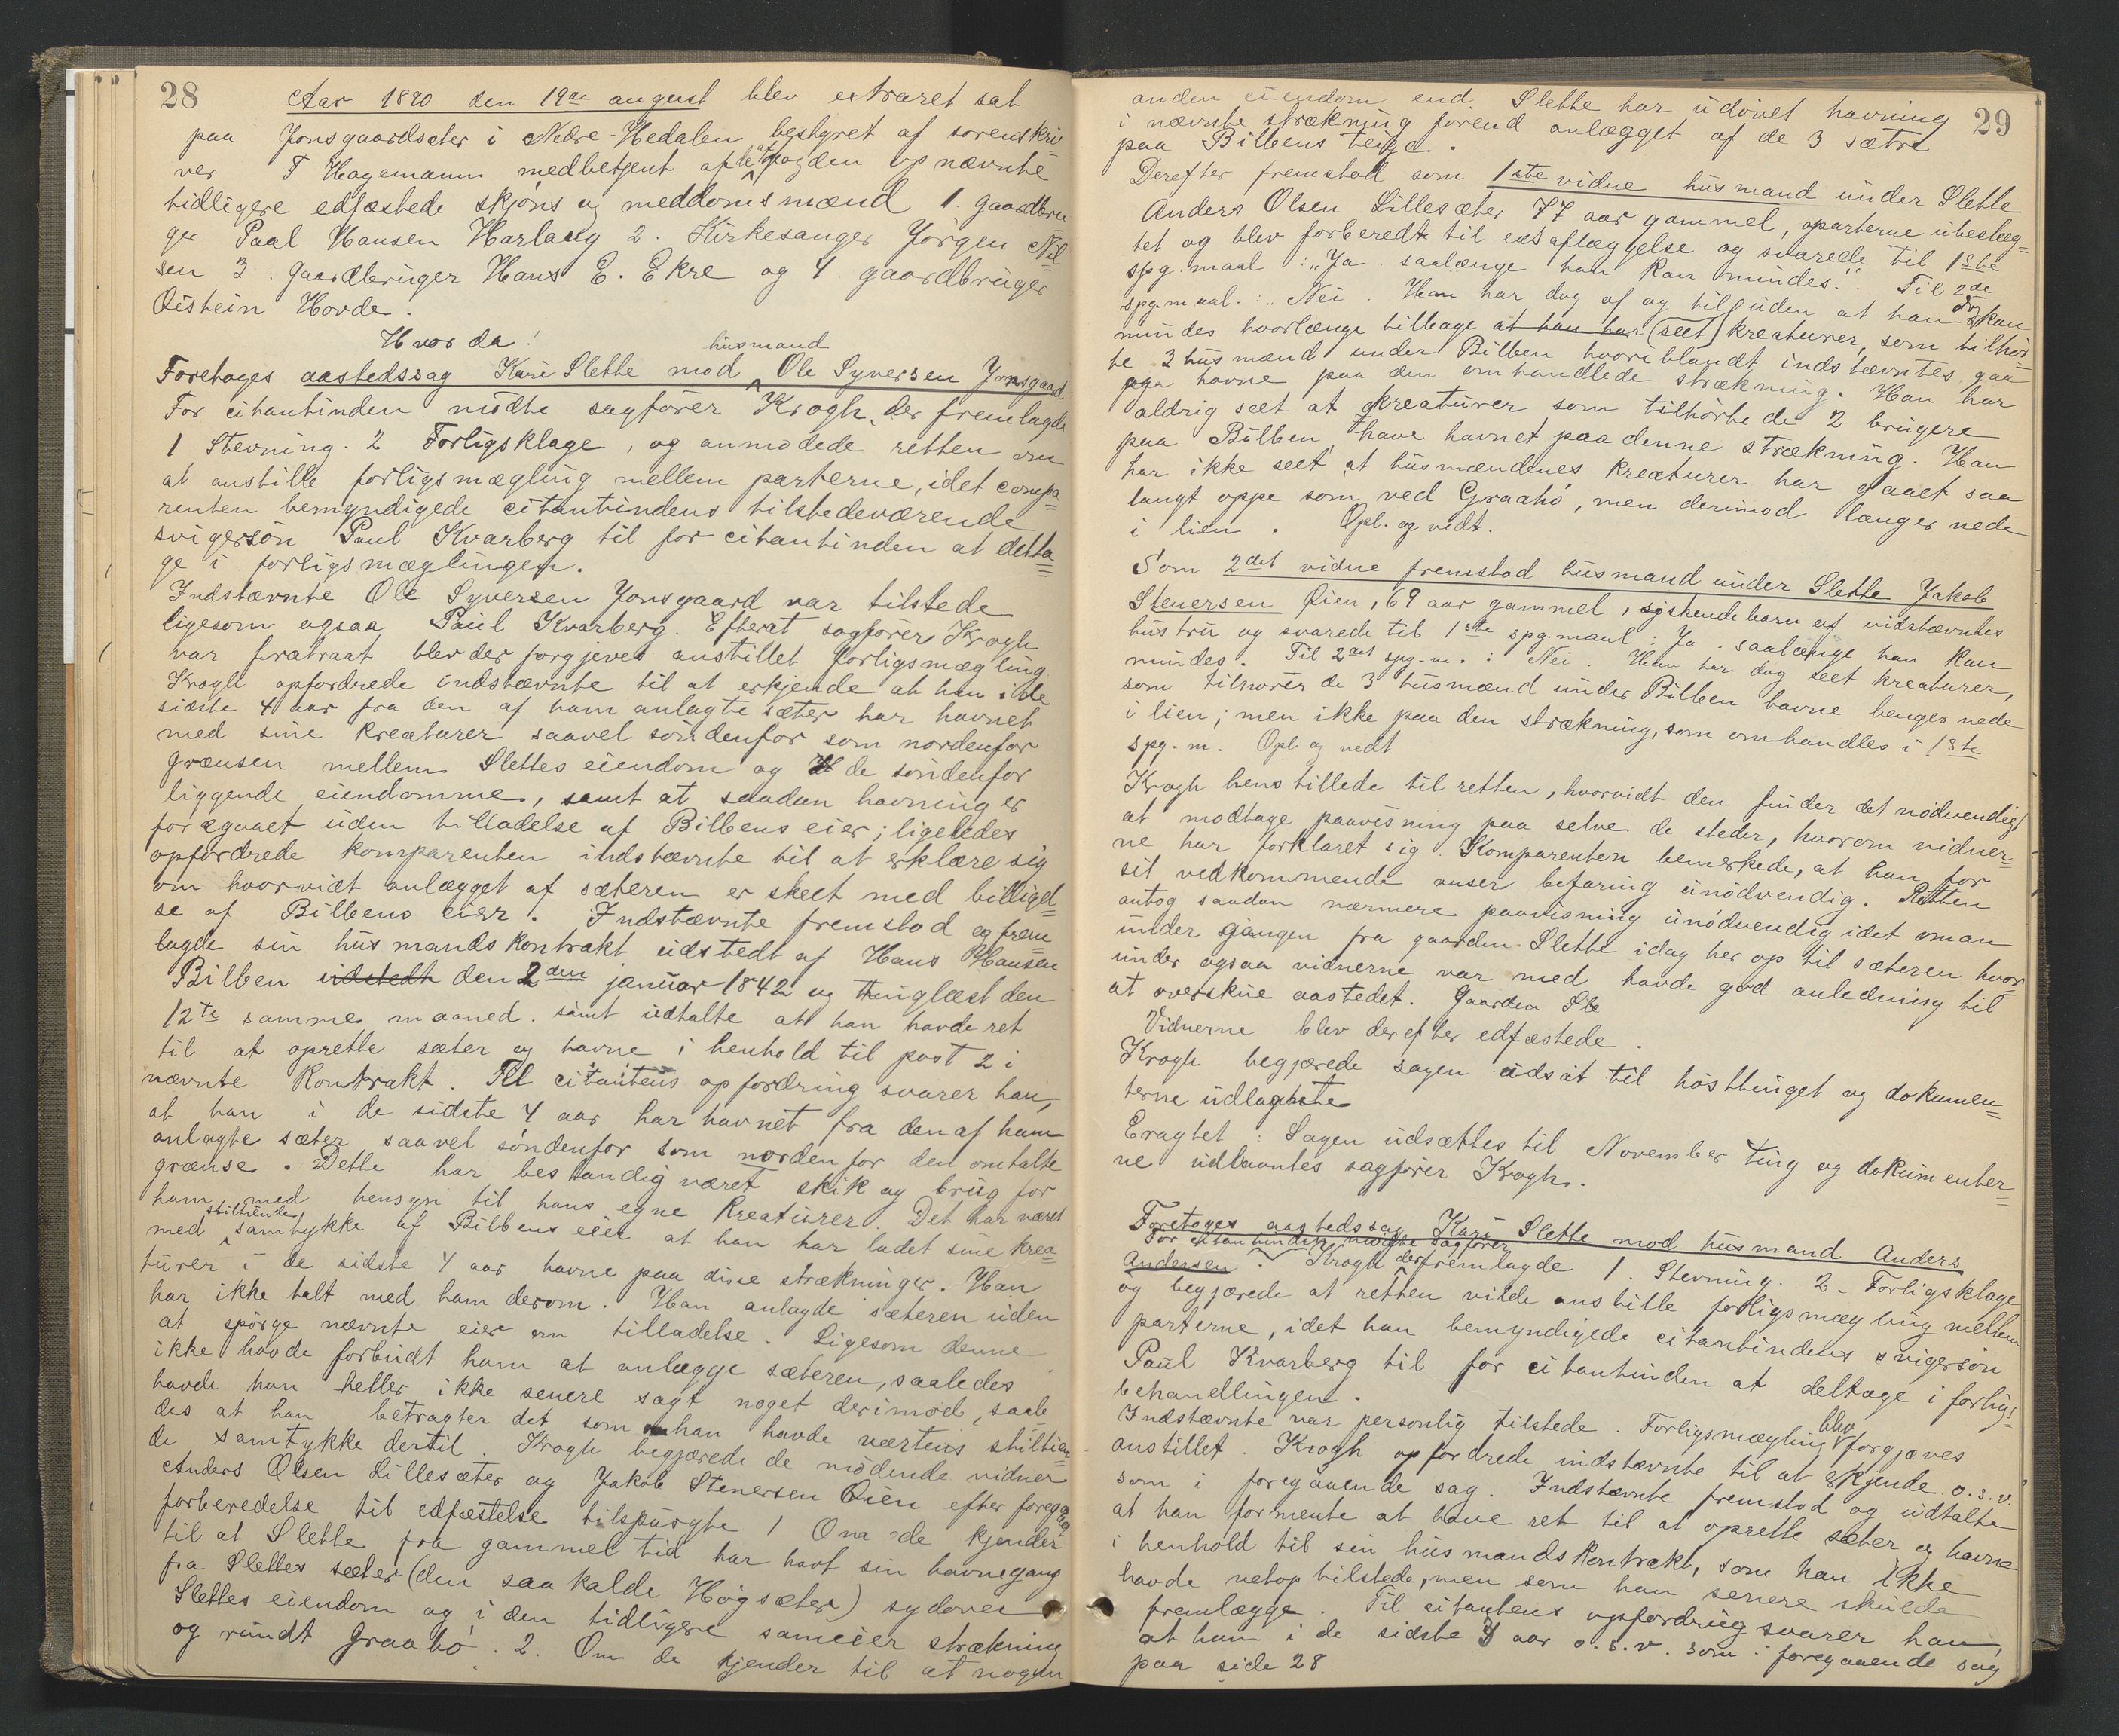 28
Aar 1890 den 19de august blev extraret sat
paa Jonsgaardsæter i Nedre-Hedalen bestyret af sorenskri=
ver F Hagemann medbetjent af de af fogden opnævnte
tidligere edfæstede skjöns og meddomsmænd 1. gaardbru
ger Paal Hansen Harlaug 2. Kirkesanger Jörgen Nil=
sen 3. Gaardbruger Hans E. Ekre og 4. gaardbruger
Öistein Hovde.
Hvor da!
husmand
Foretoges aastedssag Kari Slette mod Ole Syversen Jonsgaard
For citantinden mödte sagförer Krogh, der fremlagde
1 Stevning. 2 Forligsklage, og anmodede retten om
at anstille forligsmægling mellem parterne, idet compa=
renten bemyndigede citantindens tilstedeværende
svigersön Paul Kvarberg til for citantinden at delta=
ge i forligsmæglingen.
Indstævnte Ole Syversen Jonsgaard var tilstede
ligesom ogsaa Paul Kvarberg. Efterat sagförer Krogh
var fratraat blev der forgjeves anstillet forligsmægling
Krogh opfordrede indstævnte til at erkjende at han i de
sidste 4 aar fra den af ham anlagte sæter har havnet
med sine kreaturer saavel söndenfor som nordenfor
grænsen mellem Slettes eiendom og de söndenfor
liggende eiendomme, samt at saadan havning er
foregaaet uden tilladelse af Bilbens eier; ligeledes
opfordrede komparenten indstævnte til at erklære sig
om hvorvidt anlægget af sæteren er skeet med billigel=
se af Bilbens eier. Indstævnte fremstod og frem=
lagde sin husmandskontrakt udstedt af Hans Hansen
Bilben udstedt den 2den januar 1842 og thinglæst den
12te samme maaned. samt udtalte at han havde ret
til at oprette sæter og havne i henhold til post 2 i
nævnte kontrakt. Til citantens opfordring svarer han,
at han i de sidste 4 aar har havnet fra den af ham
anlagte sæter saavel söndenfor som nordenfor den omtalte
grænse. Dette har bestandig været skik og brug for
ham med hensyn til hans egne kreaturer. Det har været
stiltiende
med samtykke af Bilbens eier at han har ladet sine krea=
turer i de sidste 4 aar havne paa disse strækninger. Han
har ikke talt med ham derom. Han anlagde sæteren uden
at spörge nævnte eier om tilladelse. Ligesom denne
ikke havde forbudt ham at anlægge sæteren, saaledes
havde han heller ikke senere sagt noget derimod, saale=
des at han betragter det som han havde værtens stiltien=
de samtykke dertil. Krogh begjærede de mödende vidner
Anders Olsen Lillesæter og Jakob Stenersen Öien efter foregaa
forberedelse til edfæstelse tilspurgte 1 Om de kjender
til at Slette fra gammel tid har havt sin havnegang
fra Slettes sæter (den saakalde Högsæter) sydover
Slettes eiendom og i den tidligere sameier strækning
og rundt Graahö. 2. Om de kjender til at nogen
29
anden eiendom end Slette har udövet havning
i nævnte strækning forend anlægget af de 3 sætre
paa Bilbens teige.
Derefter fremstod som 1ste vidne husmand under Slette
Anders Olsen Lillesæter 77 aar gammel, aparterne ubeslæg=
tet og blev forberedt til edsaflæggelse og svarede til 1ste
spg.maal: "Ja saalænge han kan mindes". Til 2de
spg.maal.: "Nei. Han har dog af og til uden at han dog kan
mindes hvorlænge tilbage at han har (seet) kreaturer, som tilhör
te 3 husmænd under Bilben hvoriblandt indstævntes gaa
og havne paa den omhandlede strækning. Han har
aldrig seet at kreaturer som tilhörte de 2 brugere
paa Bilben have havnet paa denne strækning. Han
har ikke seet at husmændenes kreaturer har gaaet saa
langt oppe som ved Graahö, men derimod længer nede
i lien. Opl. og vedt.
Som 2det vidne fremstod husmand under Slette Jakob
Stenersen Öien, 69 aar gammel, syskendebarn af indstævntes
hustru og svarede til 1ste spg.maal: Ja saalænge han kan
mindes. Til 2det spg.m.: Nei. Han har dog seet kreaturer,
som tilhörer de 3 husmænd under Bilben havne længer nede
i lien; men ikke paa den strækning, som omhandles i 1ste
spg.m. Opl og vedt
Krogh henstillede til retten, hvorvidt den finder det nödvendigt
at modtage paavisning paa selve de steder, hvorom vidner=
ne har forklaret sig. Komparenten bemerkede, at han for
sit vedkommende anser befaring unödvendig. Retten
antog saadan nærmere paavisning unödvendig idet man
under gangen fra gaarden Slette idag her op til sæteren hvor
under ogsaa vidnerne var med havde god anledning til
at overskue aastedet. Gaarden Sle
Vidnerne blev derefter edfæstede.
Krogh begjærede sagen udsat til hösttinget og dokumen=
terne udlaante
Eragtet: Sagen udsættes til November ting og dokumenter=
ne udlaantes sagförer Krogh.
Foretoges aastedssag Kari Slette mod husmand Anders
For citantinden mödte sagförer
Andersen. Krogh der fremlagde 1. Stevning. 2. Forligsklage
og begjærede at retten vilde anstille forligsmægling mellem
parterne, idet han bemyndigede citantindens svigersön
Paul Kvarberg til for citantinden at deltage i forligs=
behandlingen.
Indstævnte var personlig tilstede. Forligsmægling blev forgjæves
anstillet. Krogh opfordrede indstævnte til at erkjende o.s.v.
som i foregaaende sag. Indstævnte fremstod og udtalte
at han formente at have ret til at oprette sæter og havne
i henhold til sin husmandskontrakt, som han ikke
havde netop tilstede, men som han senere skulde
fremlægge. Til citantens opfordring svarer han,
at ham i de sidste 4 aar o.s.v. som i foregaaende sag
paa side 28.